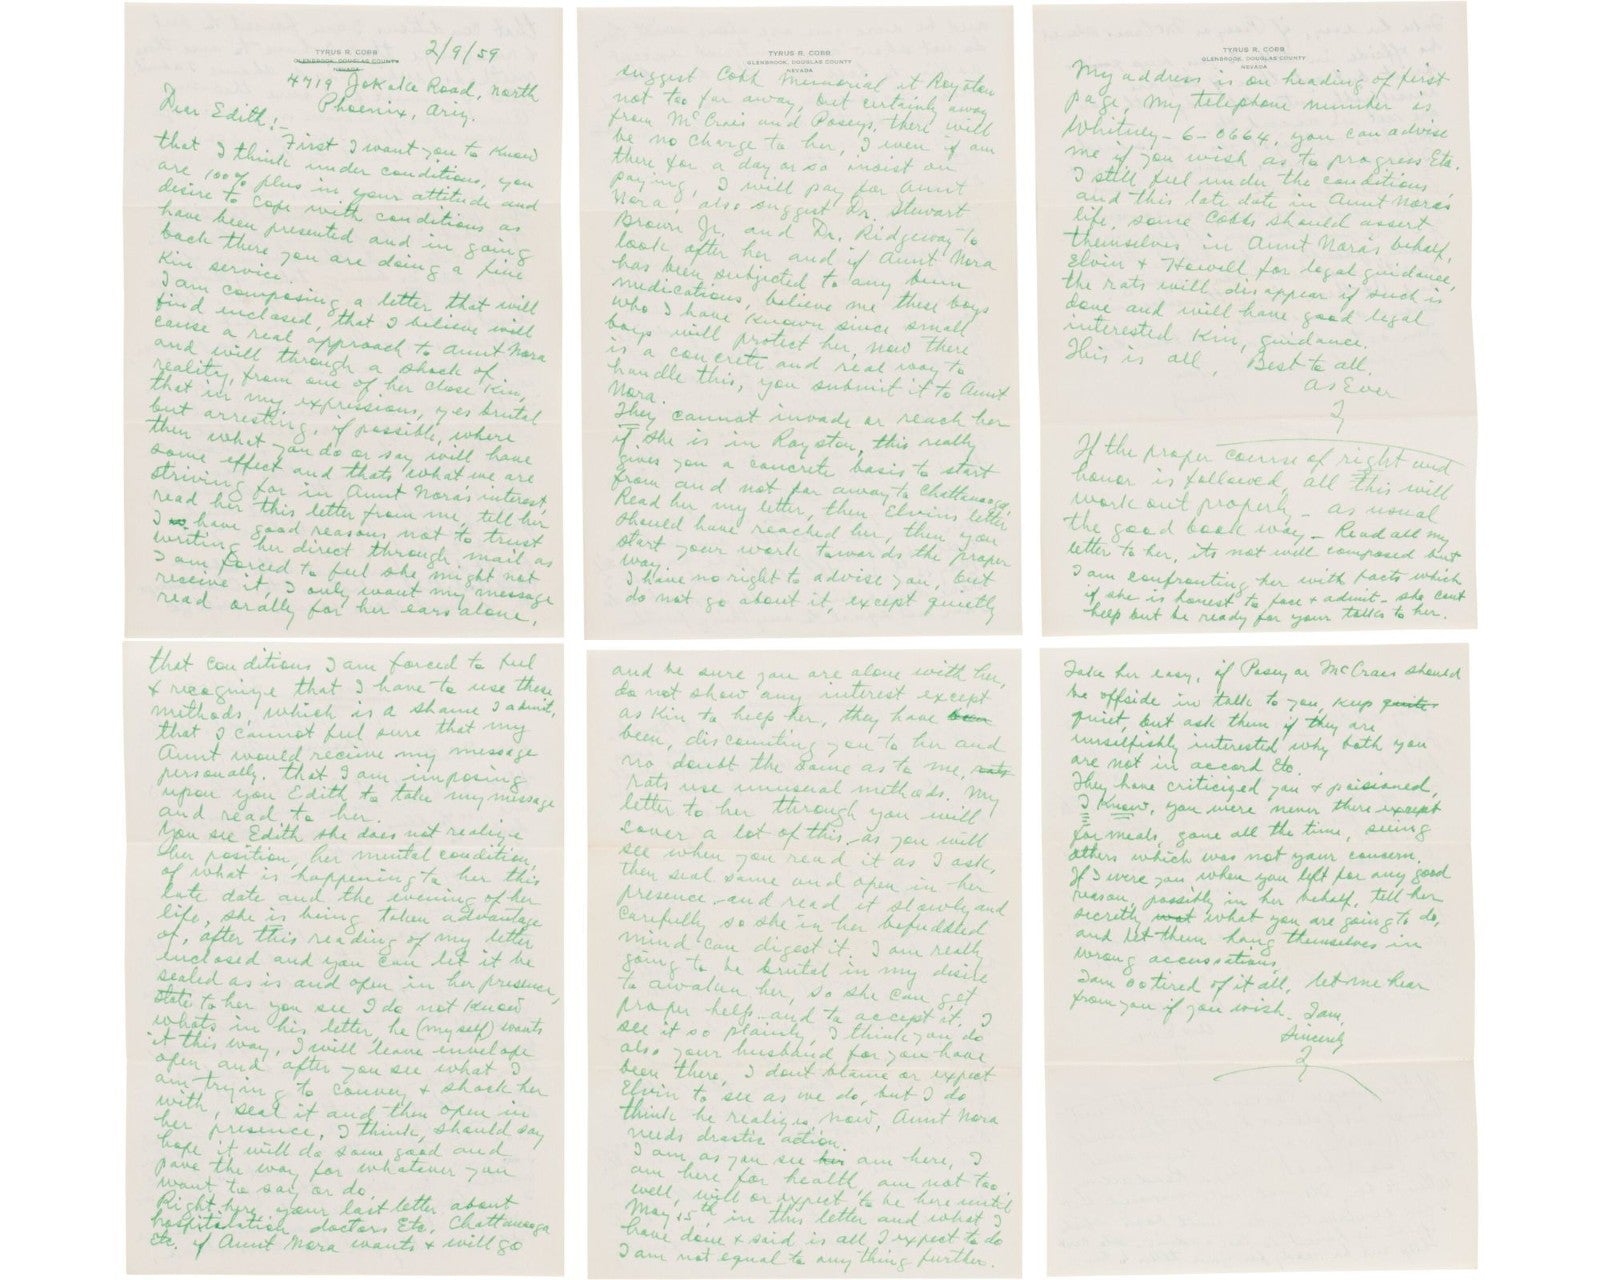 TYRUS R. COBB
GLENBROOK, DOUGLAS COUNTY
NEVADA
2/9/59
4719 Jokake Road, North
Phoenix, Ariz.
Dear Edith:-
First I want you to know
that I think under conditions, you
are 100% plus in your attitude and
desire to cope with conditions as
have been presented and in going
back there you are doing a fine
Kin service.
I am composing a letter that will
find enclosed, that I believe will
cause a real approach to Aunt Nora
and will through a shock of
reality, from one of her close Kin,
that in my expressions, yes brutal
but arresting, if possible, where
then what you do or say will have
some effect and thats what we are
striving for in Aunt Nora's interest,
read her this letter from me, tell her
I have good reasons not to trust
writing her direct through mail as
I am forced to feel she might not
receive it, I only want my message
read orally for her ears alone,
that conditions I am forced to feel
& recognize that I have to use these
methods, which is a shame I admit,
that I cannot feel sure that my
Aunt would receive my message
personally. that I am imposing
upon you Edith to take my message
and read to her.
You see Edith she does not realize
her position, her mental condition,
of what is happening to her this
late date and the evening of her
life, she is being taken advantage
of, after this reading of my letter
enclosed and you can let it be
sealed as is and open in her presence,
state to her you see I do not know
whats in his letter, he (myself) wants
it this way, I will leave envelope
open and after you see what I
am trying to convey & shock her
with, seal it and then open in
her presence, I think, should say
hope it will do some good and
pave the way for whatever you
want to say or do.
Right here, your last letter about
hospitalation, doctors Etc. Chattanooga
Etc. if Aunt Nora wants & will go
TYRUS R. COBB
GLENBROOK, DOUGLAS COUNTY
NEVADA
suggest Cobb Memorial at Royston
not too far away, but certainly away
from McCraes and Poseys, there will
be no charge to her, I even if am
there for a day or so insist on
paying, I will pay for Aunt
Nora, also suggest Dr. Stewart
Brown Jr. and Dr. Ridgeway to
look after her and if Aunt Nora
has been subjected to any bum
medications, believe me these boys
who I have known since small
boys will protect her, now there
is a concrete and real way to
handle this, you submit it to Aunt
Nora.
They cannot invade or reach her
if she is in Royston, this really
gives you a concrete basis to start
from and not far away to Chattanooga,
Read her my letter, then Elvins letter
should have reached her, then you
start your work towards the proper
way.
I have no right to advise you, but
do not go about it, except quietly
and be sure you are alone with her,
do not show any interest except
as Kin to help her, they have been
been, discounting you to her and
no doubt the same as to me, rats
rats use unusual methods. My
letter to her through you will
cover a lot of this, as you will
see when you read it as I ask,
then seal same and open in her
presence and read it slowly and
carefully so she in her befuddled
mind can digest it. I am really
going to be brutal in my desire
to awaken her, so she can get
proper help and to accept it. I
see it so plainly, I think you do
also your husband for you have
been there, I dont blame or expect
Elvin to see as we do, but I do
think he realizes now, Aunt Nora
needs drastic action.
I am as you see am here, I
am here for health, am not too
well, will or expect to be here until
May 15th, in this letter and what I
have done & said is all I expect to do
I am not equal to anything further.
TYRUS R. COBB
GLENBROOK, DOUGLAS COUNTY
NEVADA
My address is on heading of first
page, my telephone number is
Whitney-6-0664, you can advise
me if you wish as to progress Etc.
I still feel under the conditions
and this late date in Aunt Nora's
life, some Cobbs should assert
themselves in Aunt Nora's behalf,
Elvin & Howell for legal guidance,
the rats will disappear if such is
done and will have good legal
interested Kin, guidance.
This is all, Best to all.
As Ever
Ty
If the proper course of right and
honor is followed, all this will
work out properly - as usual
the good book way - Read all my
letter to her, its not well composed but
I am confronting her with facts which
if she is honest to face & admit - she cant
help but be ready for your talks to her.
Take her easy, if Posey or McCraes should
be offside in talk to you, keep quite
quiet, but ask them if they are
unselfishly interested why both you
are not in accord Etc.
They have criticized you & poisioned,
I Know, you were never there except
for meals, gone all the time, seeing
others which was not your concern.
If I were you when you left for any good
reason, possibly in her behalf, tell her
secretly what you are going to do,
and let them hang themselves in
wrong accusations.
I am so tired of it all, let me hear
from you if you wish. I am,
Sincerely
Ty